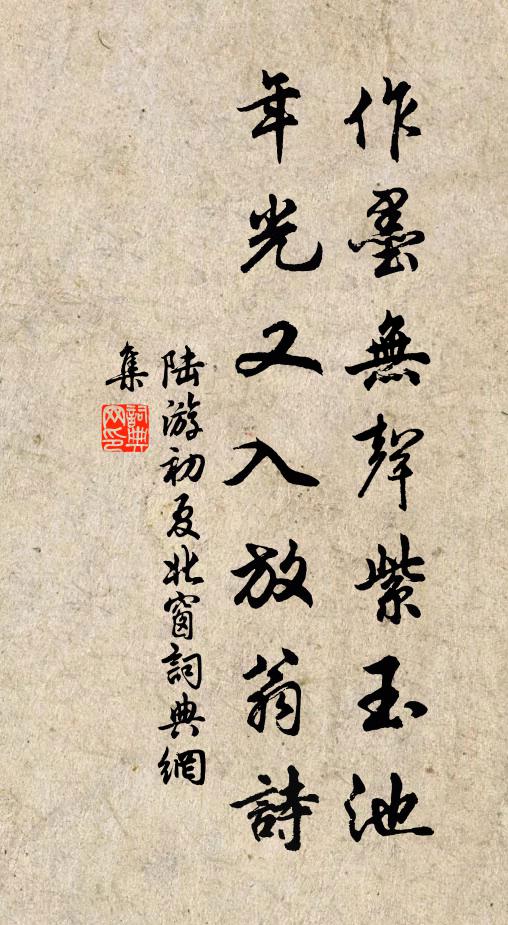 作墨無聲紫玉池
年光又入放翁詩
陸游初夏北窗詞典網
集
詞典网印